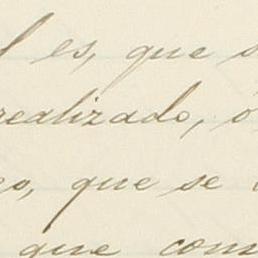 es, que s
realizado, ó
o, que se
que com